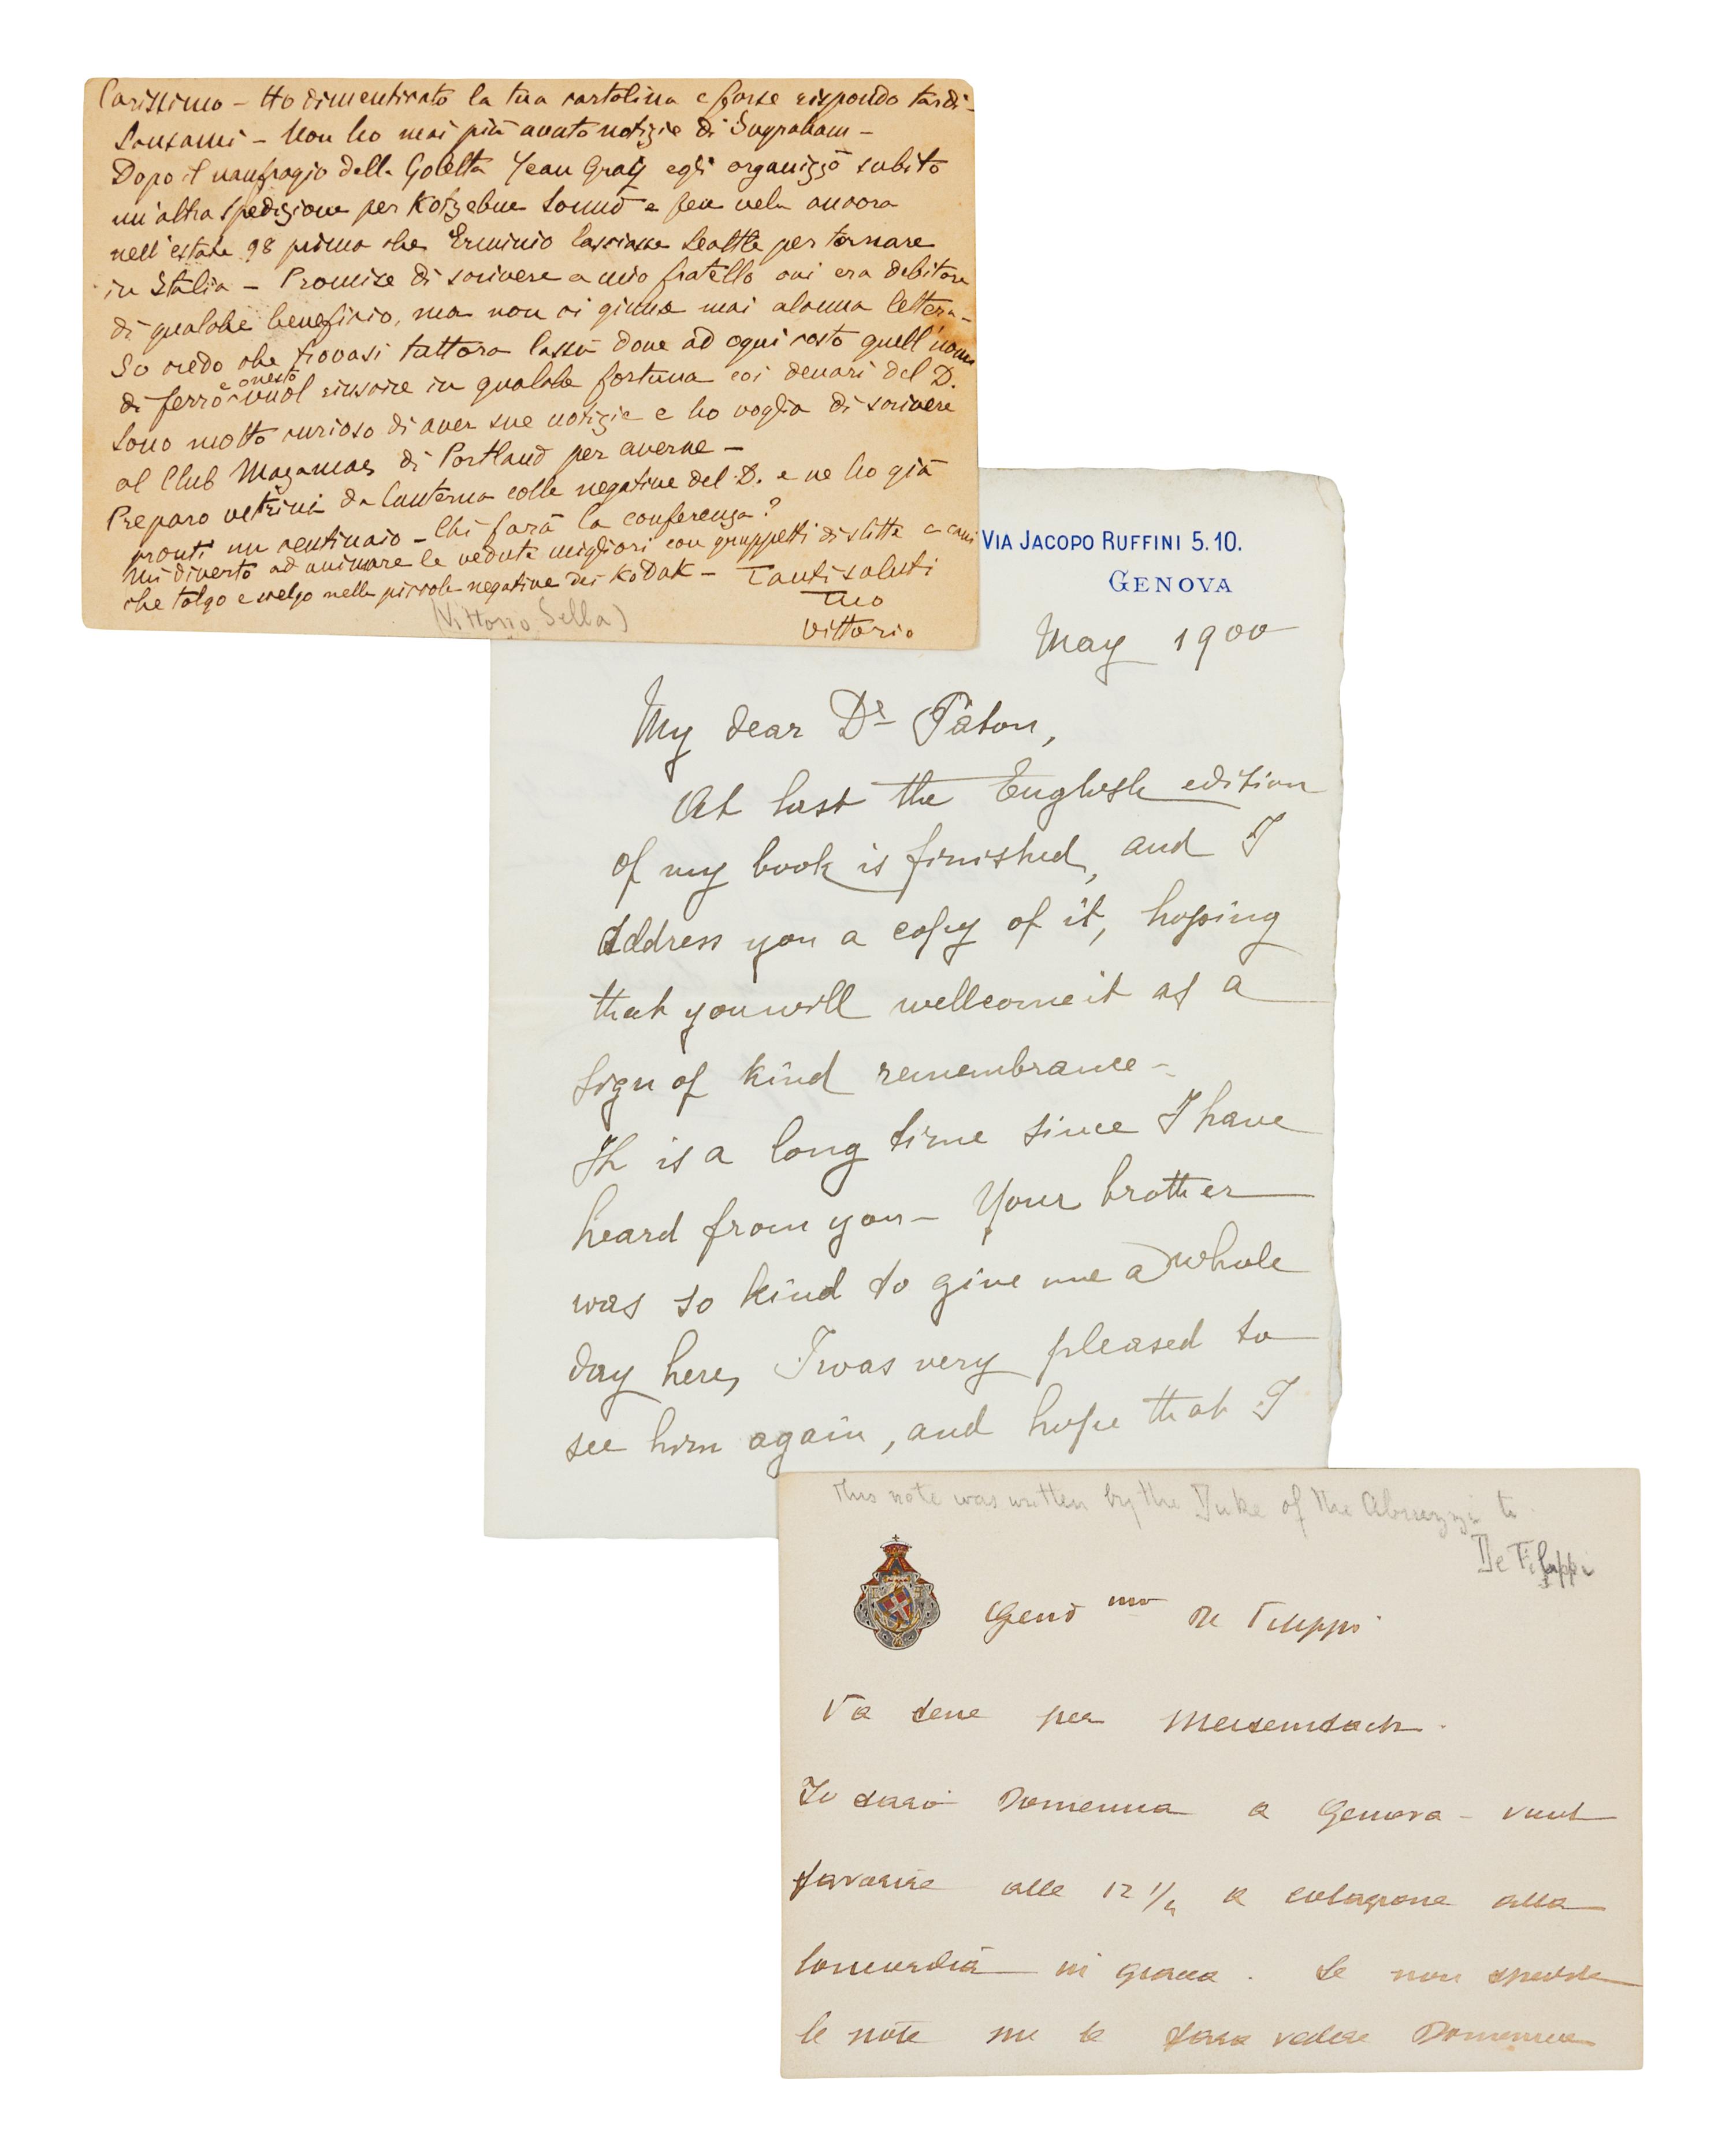 Carissimo – Ho dimenticato la tua cartolina e forse rispondo tardi –
Scusami – Non ho mai più avuto notizie di Ingraham –
Dopo il naufragio della Goletta Jean Gray egli organizzò subito
un'altra spedizione per Kotzebue Sound e fece vela ancora
nell'estate 98 prima che Erminio lasciasse Seattle per tornare
in Italia – Promise di scrivere a mio fratello cui era debitore
di qualche beneficio, ma non ci giunse mai alcuna lettera –
Io credo che trovasi tuttora lassù dove ad ogni costo quell'uomo
di ferro e onesto vuol riuscire in qualche fortuna coi denari del D.
Sono molto curioso di aver sue notizie e ho voglia di scrivere
al Club Mazamas di Portland per averne –
Preparo vetrini da lanterna colle negative del D. e ne ho già
pronti un centinaio – Chi farà la conferenza?
Mi diverto ad animare le vedute migliori con gruppetti di slitte a cani
che tolgo e scelgo nelle piccole negative dei Kodak – Tanti saluti
Tuo
Vittorio
(Vittorio Sella)
VIA JACOPO RUFFINI 5.10.
GENOVA
May 1900
My dear Dr Paton,
At last the English edition
of my book is finished, and I
address you a copy of it, hoping
that you will wellcome it as a
sign of kind remembrance –
It is a long time since I have
heard from you – Your brother
was so kind to give me a whole
day here, I was very pleased to
see him again, and hope that I
This note was written by the Duke of the Abruzzi to
De Filippi
De Filippi
Va bene per
Io sarò Domenica a Genova – vuol
favorire alle 12 1/2 a colazione alla
Concordia in
Se non spedisce
le note me le farà vedere Domenica